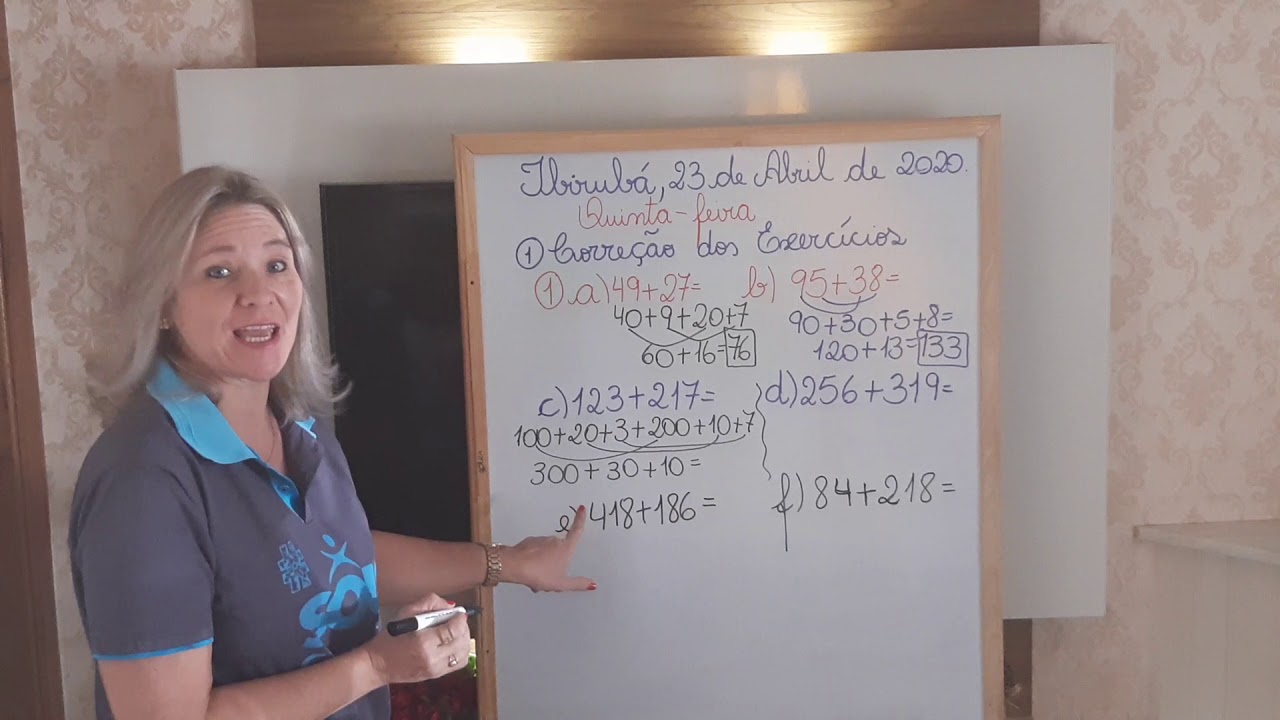 Ibirubá, 23 de Abril de 2020.
Quinta-feira
① Correção dos Exercícios
① a) 49+27= b) 95+38=
40+9+20+7 90+30+5+8=
60+16=76 120+13=133
c) 123+217= d) 256+319=
100+20+3+200+10+7
300+30+10=
e) 418+186= f) 84+218=